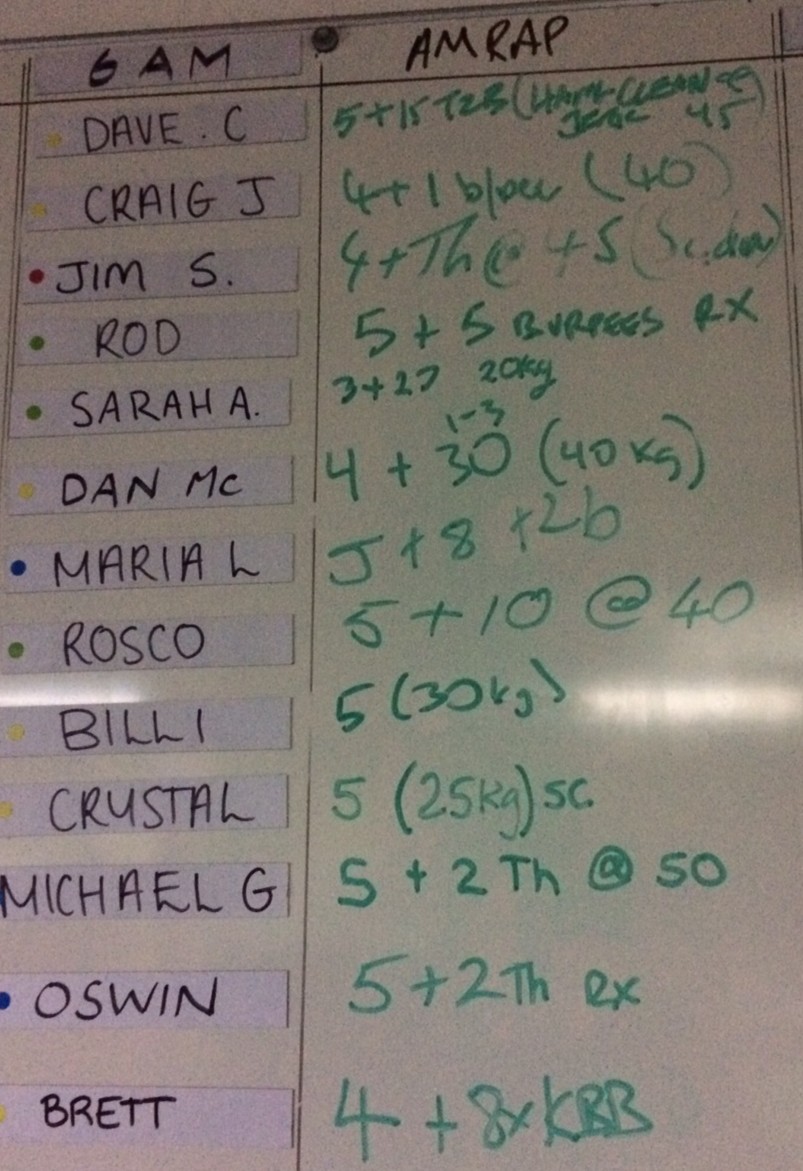 6 AM AMRAP
DAVE . C 5+15 T2B (HANG CLEAN &
JERK 45)
CRAIG J 4+1 (40)
JIM S. 4+Th@ 45
ROD 5 + 5 BURPEES RX
SARAH A. 3+27 20kg
1-3
DAN Mc 4 + 30 (40 KG)
MARIA L 5 + 8 +2b
ROSCO 5 + 10 @ 40
BILLI 5 (30kg)
CRYSTAL 5 (25kg) SC.
MICHAEL G 5 + 2 Th @ 50
OSWIN 5+2Th RX
BRETT 4 + 8x KBB